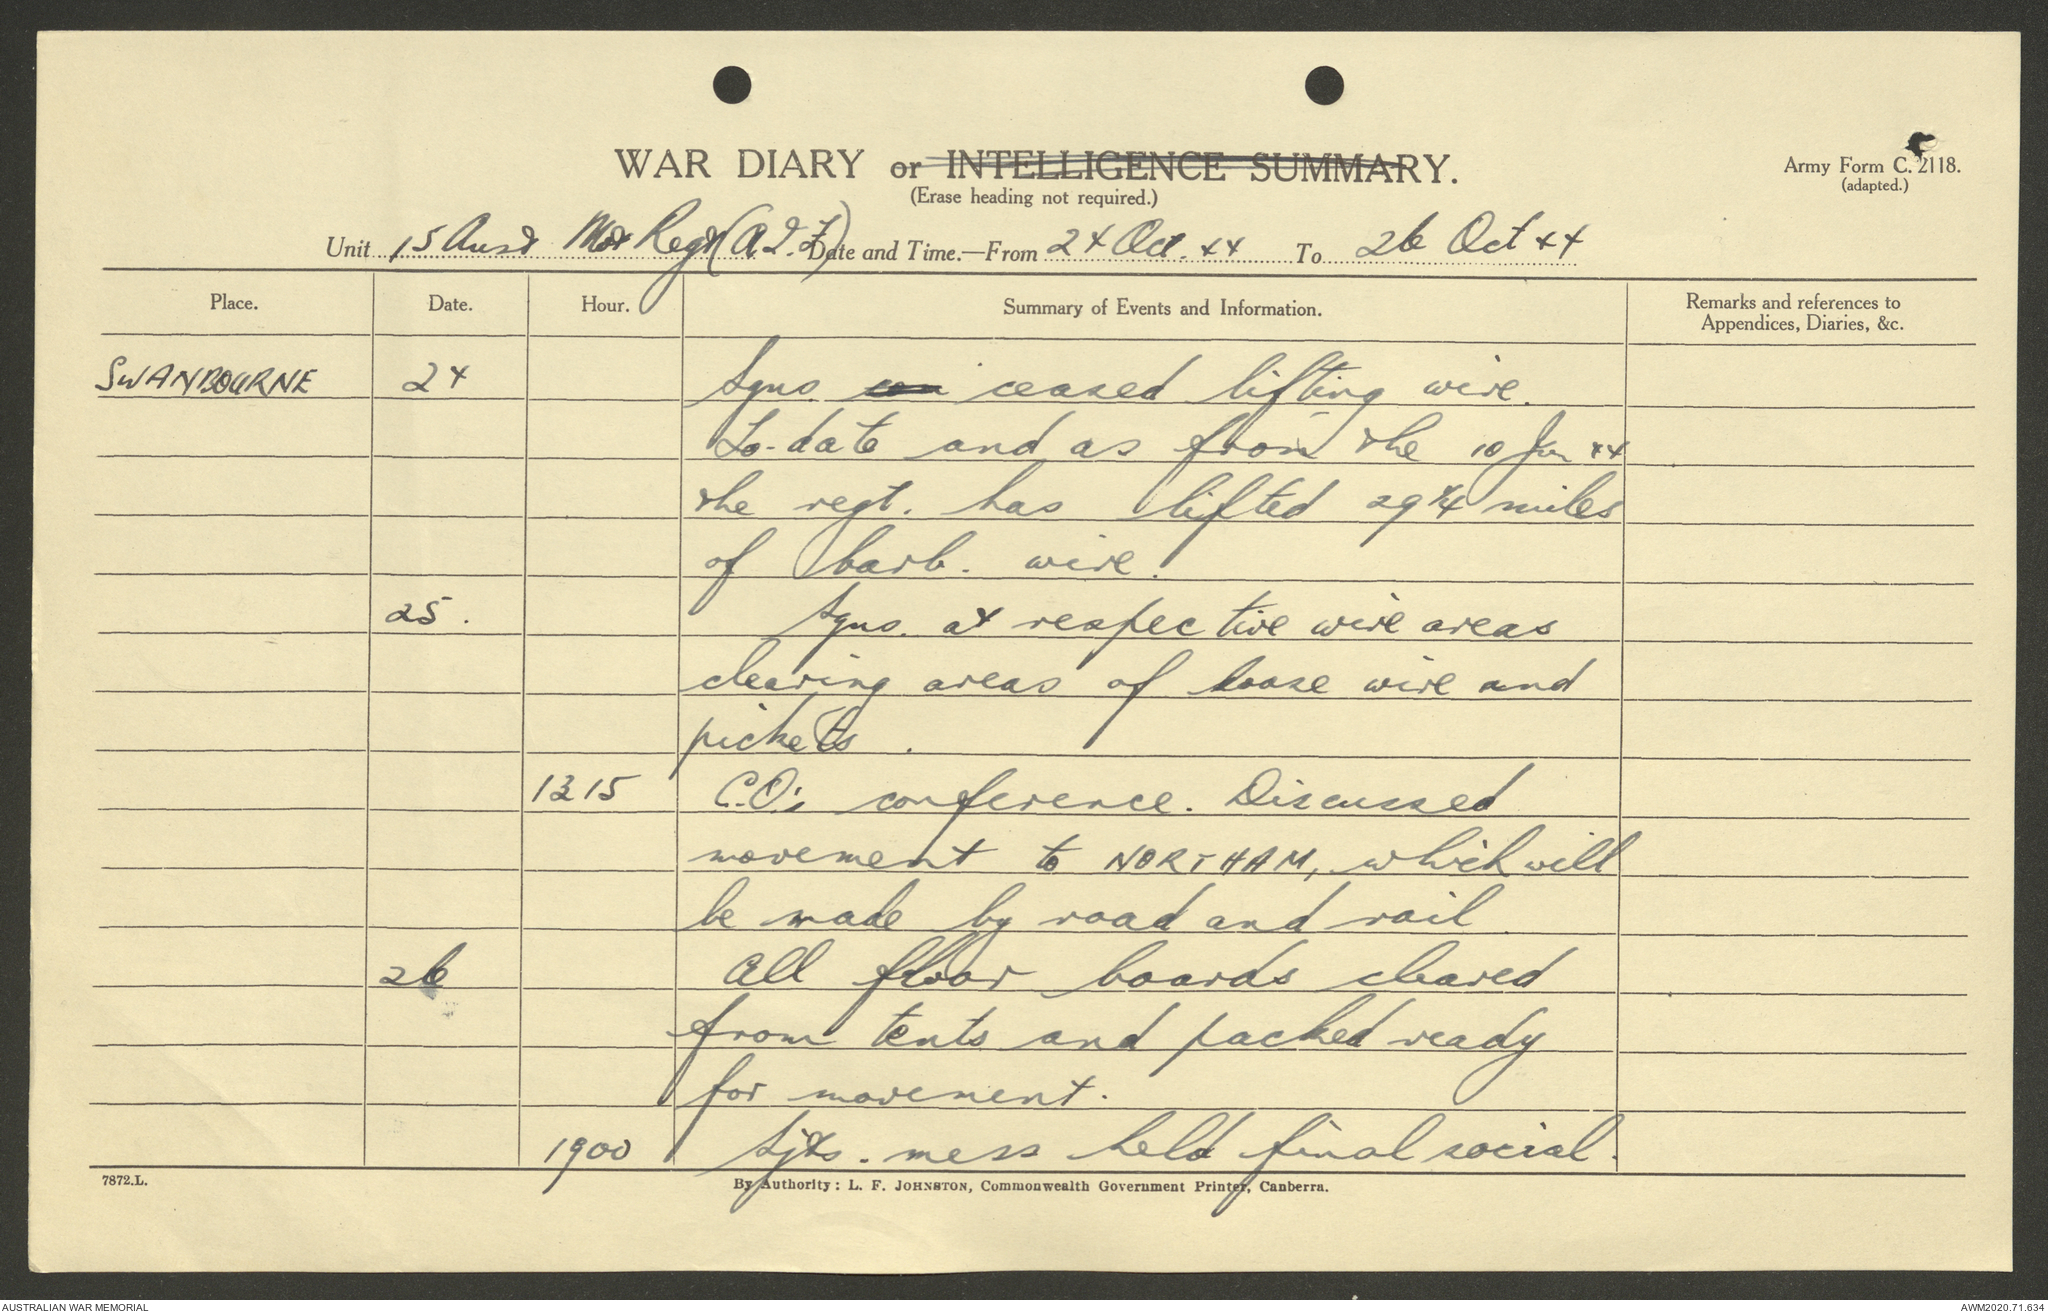 WAR DIARY or INTELLIGENCE SUMMARY.
(Erase heading not required.)
Army Form C. 2118.
(adapted.)
Unit 15 Aust Mot Regt (A.I.F) Date and Time.—From 24 Oct. 44 To 26 Oct 44
Place. Date. Hour. Summary of Events and Information. Remarks and references to Appendices, Diaries, &c.
SWANBOURNE 24 Sqns. ceased lifting wire.
To-date and as from the 10 Jun 44
the regt. has lifted 29 1/4 miles
of barb. wire.
25. Sqns. at respective wire areas
clearing areas of loose wire and
pickets.
1315 C.O's conference. Discussed
movement to NORTHAM, which will
be made by road and rail
26 All floor boards cleared
from tents and packed ready
for movement.
1900 Sjts. mess held final social.
7872.L.
By Authority: L. F. JOHNSTON, Commonwealth Government Printer, Canberra.
AUSTRALIAN WAR MEMORIAL
AWM2020.71.634